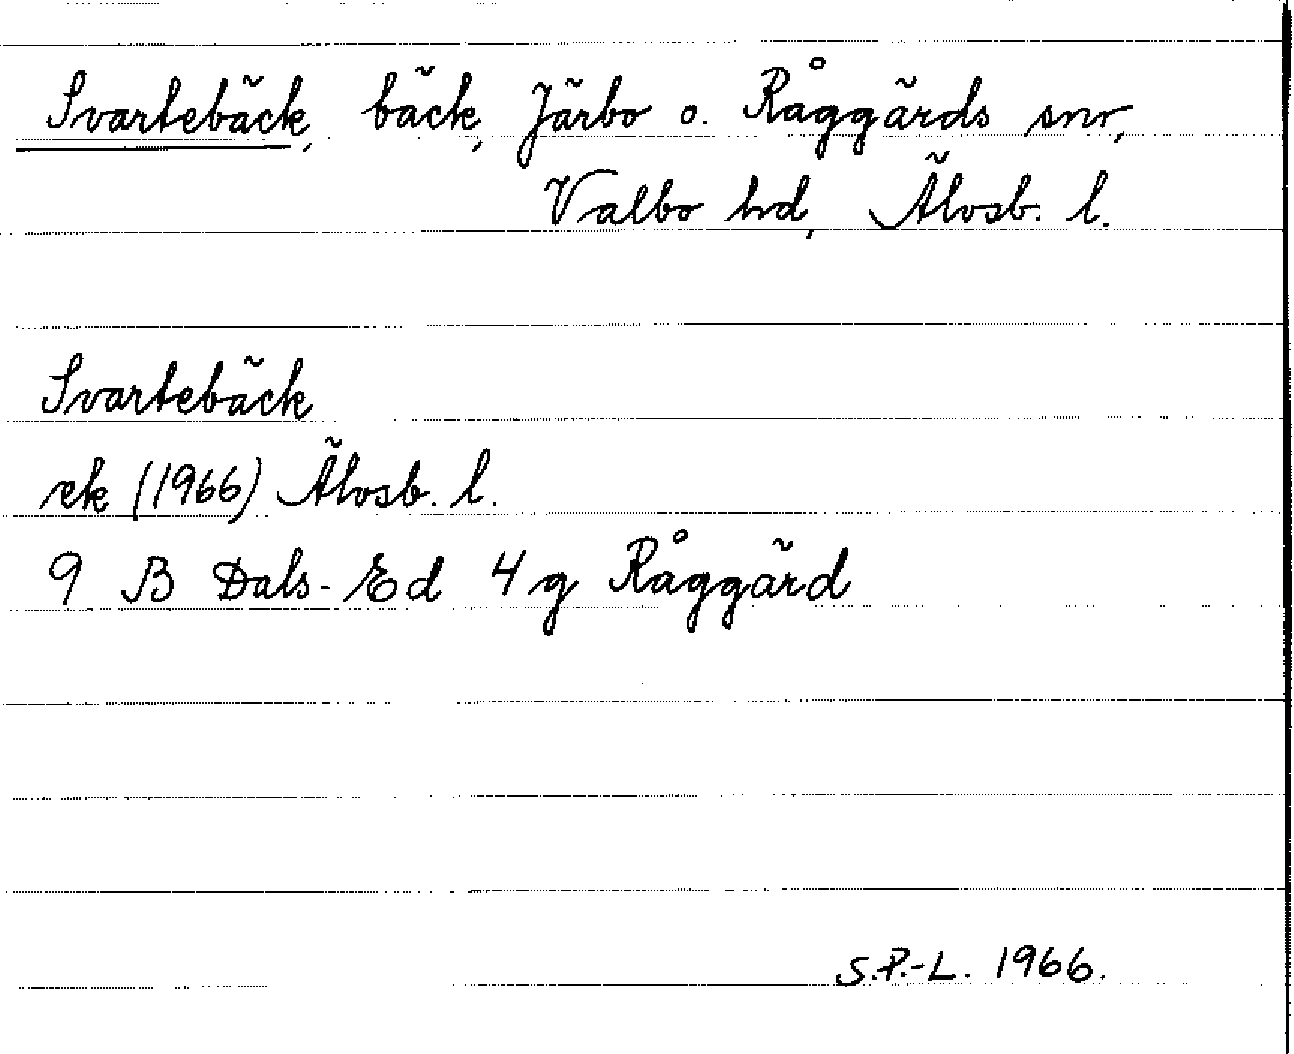 Svartebäck, bäck, Järbo o. Råggärds snr,
Valbo hd, Älvsb. l.
Svartebäck
ek (1966) Älvsb. l.
9 B Dals-Ed 4 g Råggärd
S.P.-L. 1966.